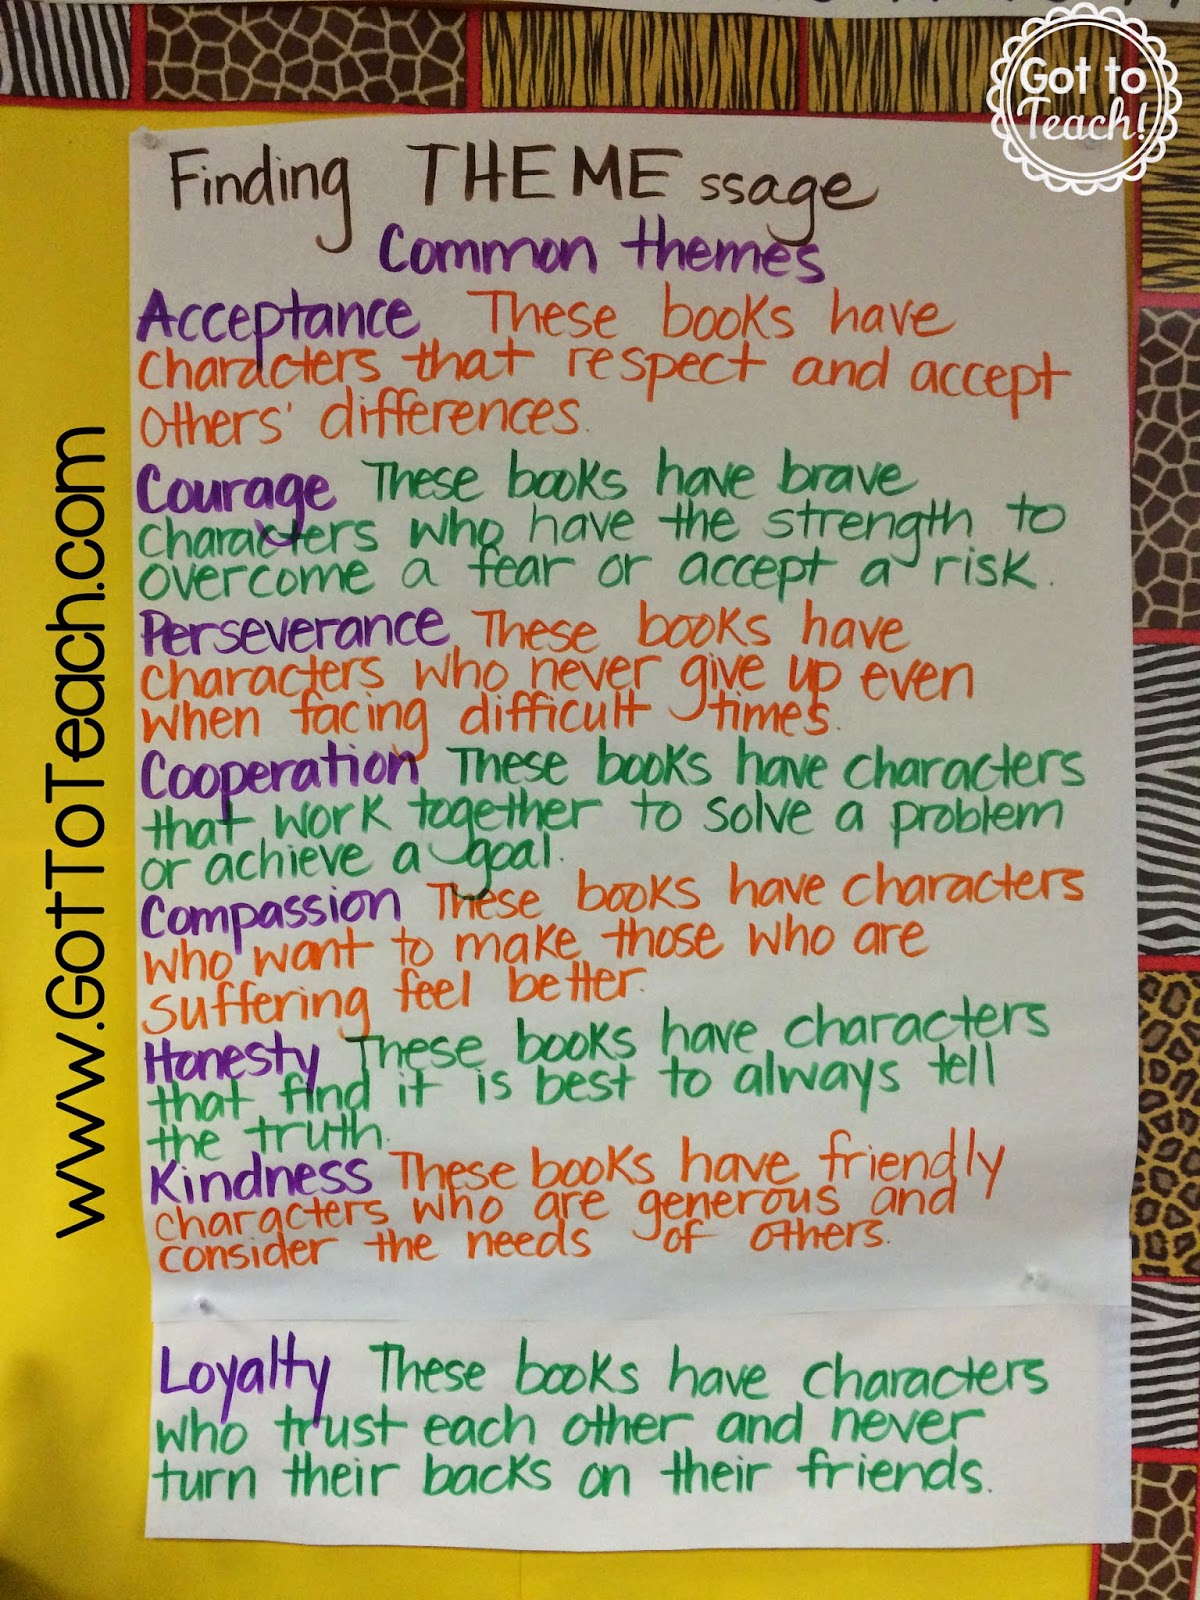 Got to
Teach!
Finding THEME ssage
Common themes
Acceptance These books have
characters that respect and accept
others' differences.
Courage These books have brave
characters who have the strength to
overcome a fear or accept a risk.
Perseverance These books have
characters who never give up even
when facing difficult times.
Cooperation These books have characters
that work together to solve a problem
or achieve a goal.
Compassion These books have characters
who want to make those who are
suffering feel better.
Honesty These books have characters
that find it is best to always tell
the truth.
Kindness These books have friendly
characters who are generous and
consider the needs of others.
Loyalty These books have characters
who trust each other and never
turn their backs on their friends.
www.GotToTeach.com